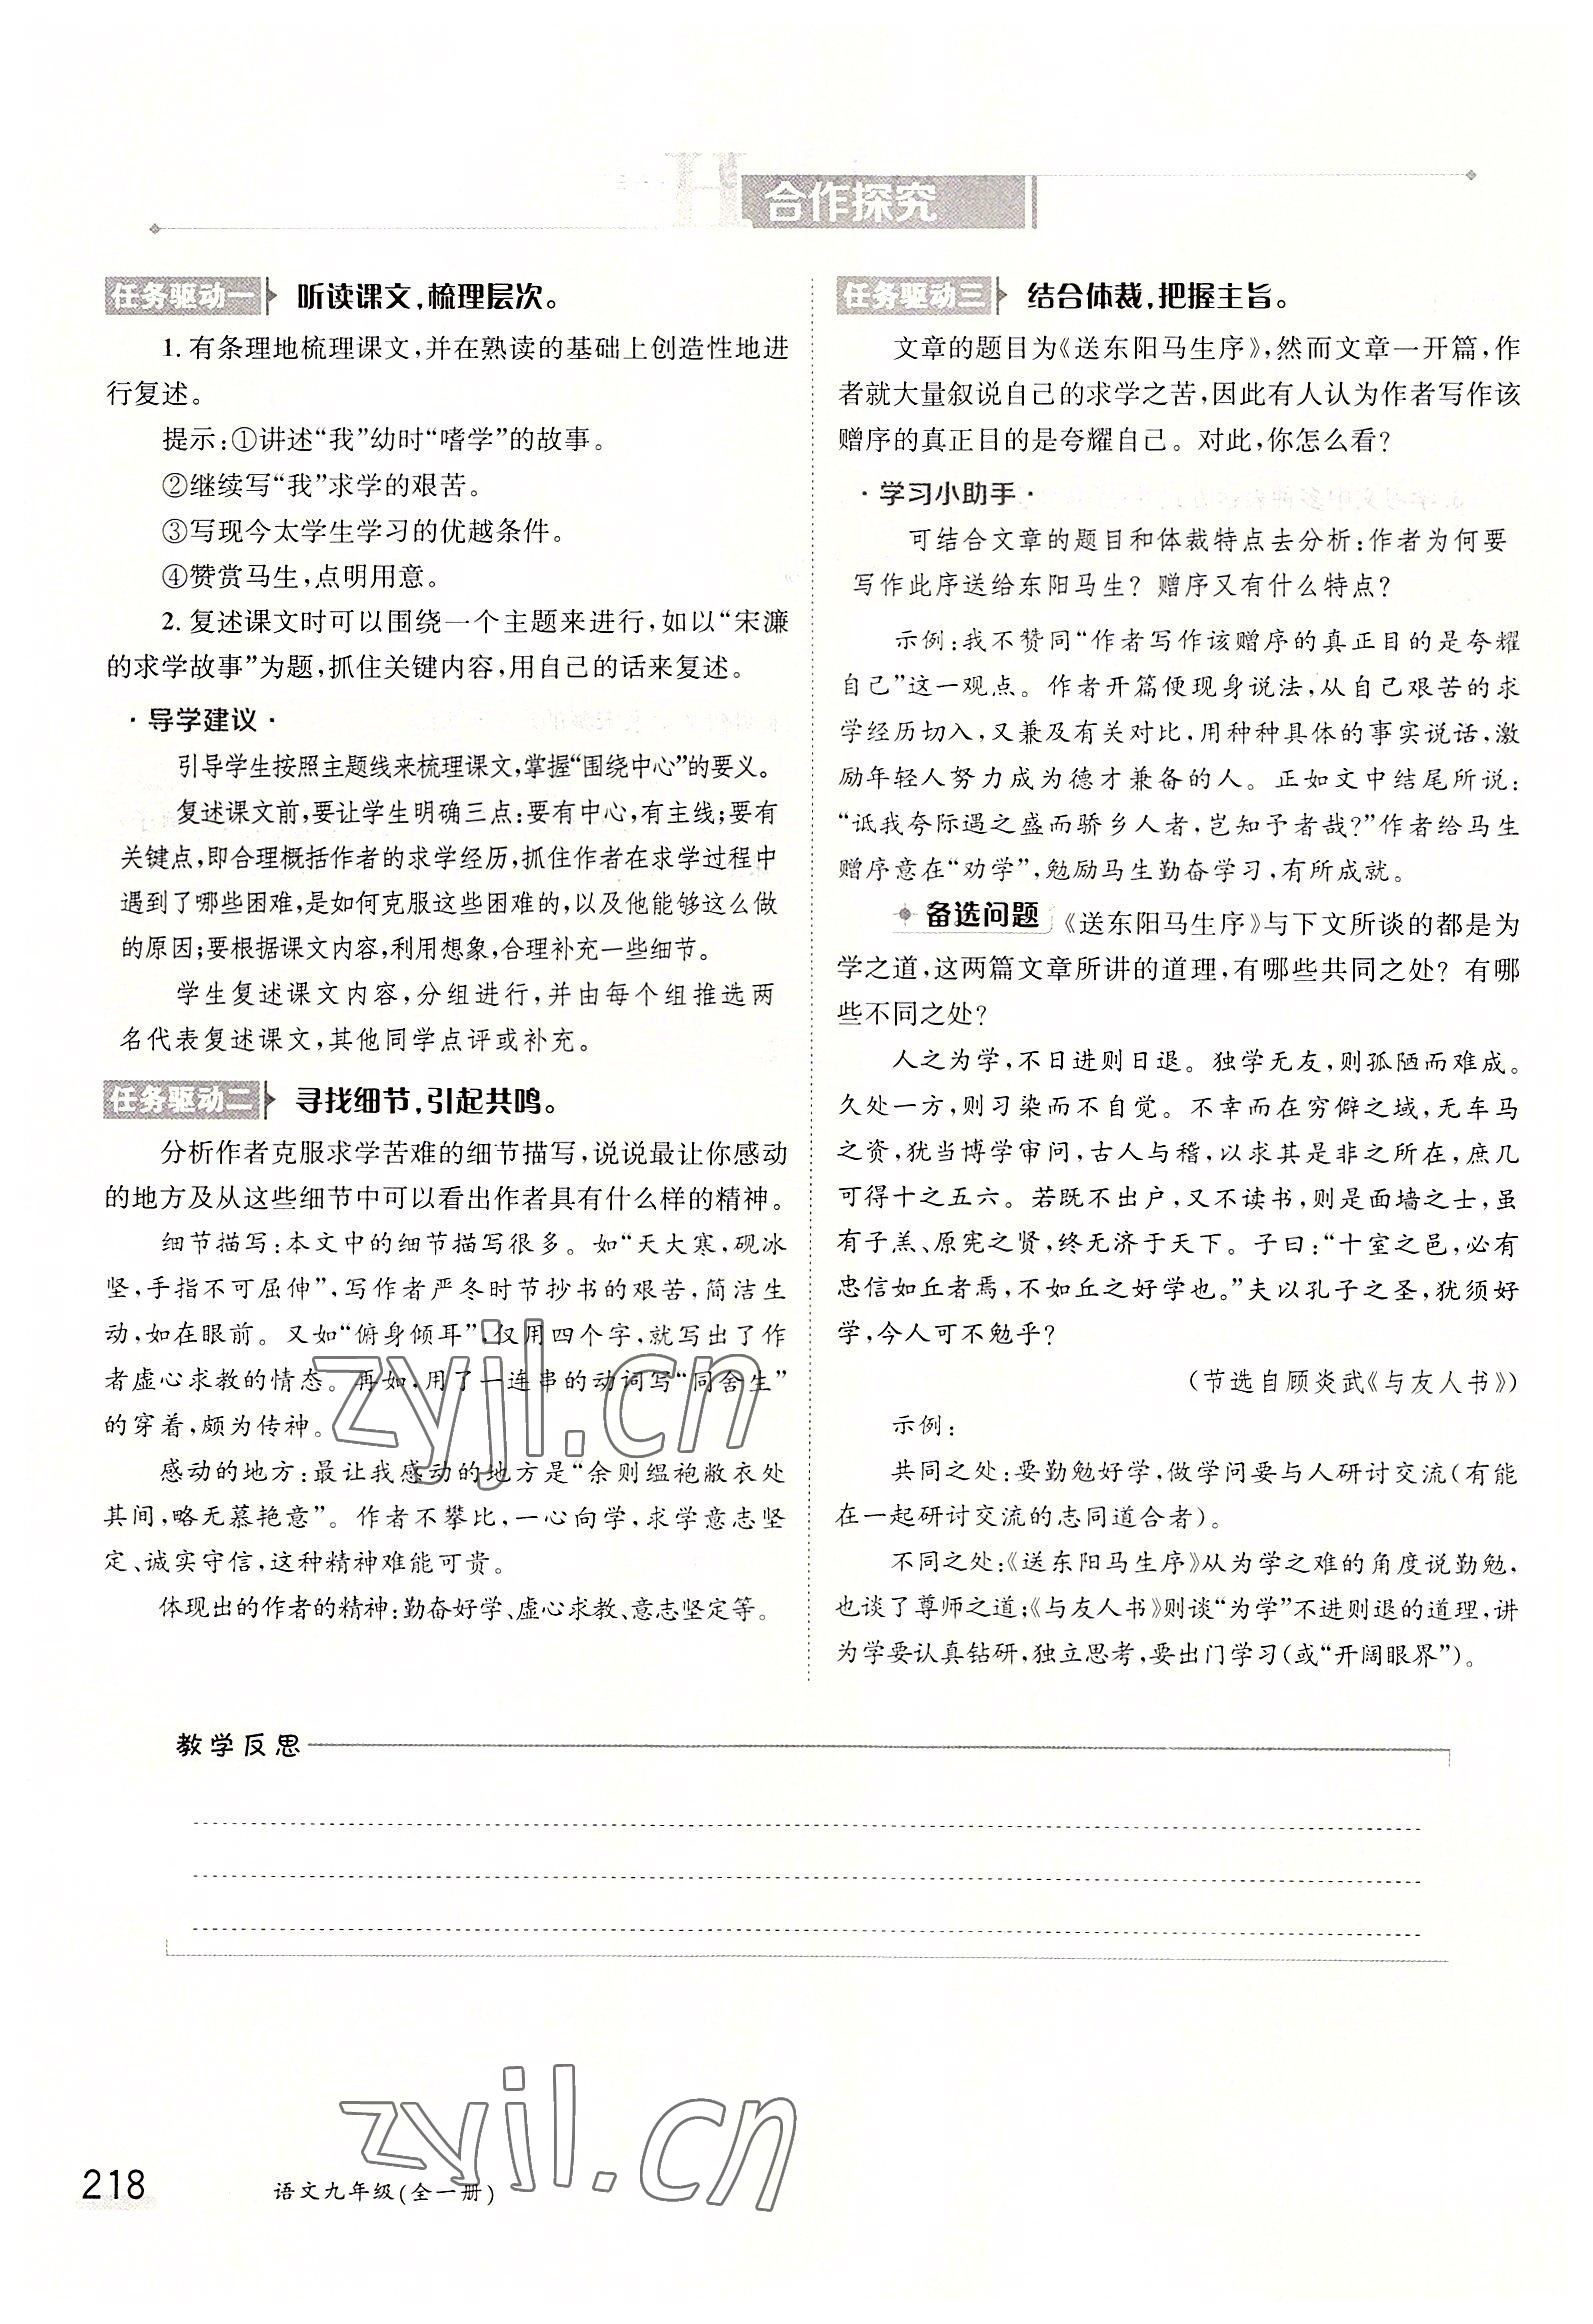 合作探究
任务驱动一 听读课文,梳理层次。
1. 有条理地梳理课文,并在熟读的基础上创造性地进
行复述。
提示:①讲述“我”幼时“嗜学”的故事。
②继续写“我”求学的艰苦。
③写现今太学生学习的优越条件。
④赞赏马生,点明用意。
2. 复述课文时可以围绕一个主题来进行,如以“宋濂
的求学故事”为题,抓住关键内容,用自己的话来复述。
·导学建议·
引导学生按照主题线来梳理课文,掌握“围绕中心”的要义。
复述课文前,要让学生明确三点:要有中心,有主线;要有
关键点,即合理概括作者的求学经历,抓住作者在求学过程中
遇到了哪些困难,是如何克服这些困难的,以及他能够这么做
的原因;要根据课文内容,利用想象,合理补充一些细节。
学生复述课文内容,分组进行,并由每个组推选两
名代表复述课文,其他同学点评或补充。
任务驱动二 寻找细节,引起共鸣。
分析作者克服求学苦难的细节描写,说说最让你感动
的地方及从这些细节中可以看出作者具有什么样的精神。
细节描写:本文中的细节描写很多。如“天大寒,砚冰
坚,手指不可屈伸”,写作者严冬时节抄书的艰苦,简洁生
动,如在眼前。又如“俯身倾耳”,仅用四个字,就写出了作
者虚心求教的情态。再如,用了一连串的动词写“同舍生”
的穿着,颇为传神。
感动的地方:最让我感动的地方是“余则缊袍敝衣处
其间,略无慕艳意”。作者不攀比,一心向学,求学意志坚
定、诚实守信,这种精神难能可贵。
体现出的作者的精神:勤奋好学、虚心求教、意志坚定等。
任务驱动三 结合体裁,把握主旨。
文章的题目为《送东阳马生序》,然而文章一开篇,作
者就大量叙说自己的求学之苦,因此有人认为作者写作该
赠序的真正目的是夸耀自己。对此,你怎么看?
·学习小助手·
可结合文章的题目和体裁特点去分析:作者为何要
写作此序送给东阳马生? 赠序又有什么特点?
示例:我不赞同“作者写作该赠序的真正目的是夸耀
自己”这一观点。作者开篇便现身说法,从自己艰苦的求
学经历切入,又兼及有关对比,用种种具体的事实说话,激
励年轻人努力成为德才兼备的人。正如文中结尾所说:
“诋我夸际遇之盛而骄乡人者,岂知予者哉?”作者给马生
赠序意在“劝学”,勉励马生勤奋学习,有所成就。
备选问题 《送东阳马生序》与下文所谈的都是为
学之道,这两篇文章所讲的道理,有哪些共同之处? 有哪
些不同之处?
人之为学,不日进则日退。独学无友,则孤陋而难成。
久处一方,则习染而不自觉。不幸而在穷僻之域,无车马
之资,犹当博学审问,古人与稽,以求其是非之所在,庶几
可得十之五六。若既不出户,又不读书,则是面墙之士,虽
有子羔、原宪之贤,终无济于天下。子曰:“十室之邑,必有
忠信如丘者焉,不如丘之好学也。”夫以孔子之圣,犹须好
学,今人可不勉乎?
(节选自顾炎武《与友人书》)
示例:
共同之处:要勤勉好学,做学问要与人研讨交流(有能
在一起研讨交流的志同道合者)。
不同之处:《送东阳马生序》从为学之难的角度说勤勉,
也谈了尊师之道;《与友人书》则谈“为学”不进则退的道理,讲
为学要认真钻研,独立思考,要出门学习(或“开阔眼界”)。
zyjl.cn
教学反思
zyjl.cn
218
语文九年级(全一册)